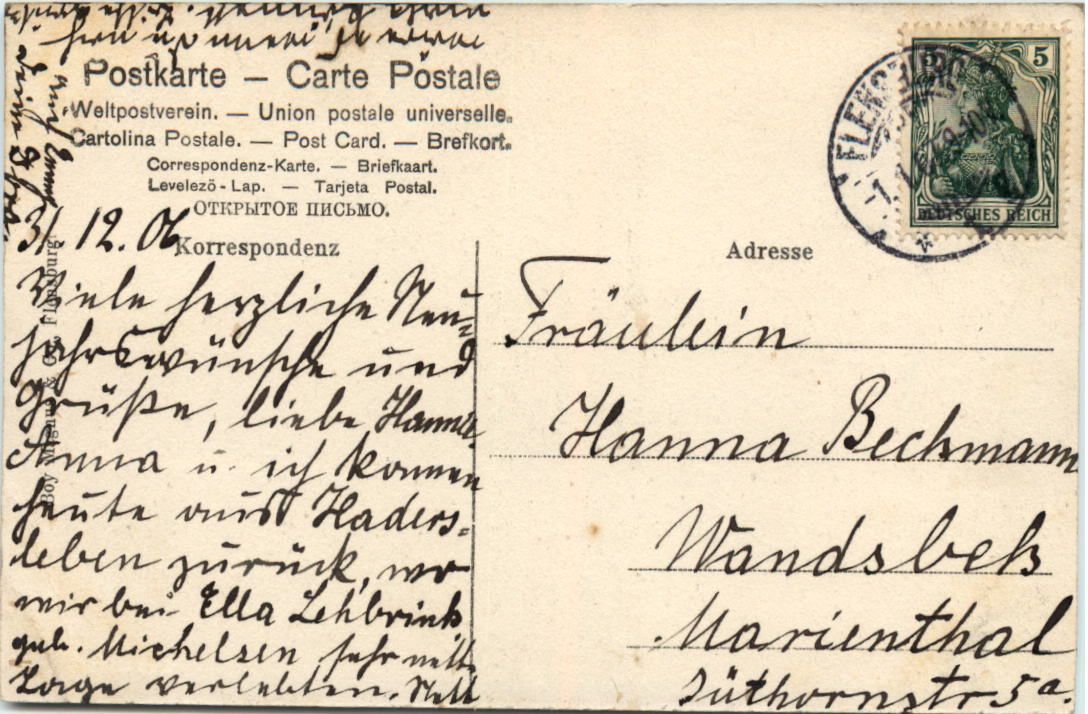 Postkarte — Carte Postale
Weltpostverein. — Union postale universelle.
Cartolina Postale. — Post Card. — Brefkort.
Correspondenz-Karte. — Briefkaart.
Levelezö-Lap. — Tarjeta Postal.
ОТКРЫТОЕ ПИСЬМО.
Korrespondenz
31. 12. 06
Viele herzliche Neu-
jahrswünsche und
Grüße, liebe Hanna
Anna u. ich kommen
heute aus Haders-
leben zurück, wo
wir bei Ella Lehbrink
geb. Michelsen sehr nette
Tage verlebten.
Adresse
Fräulein
Hanna Beckmann
Wandsbek
Marienthal
Jüthornstr 5a.
FLENSBURG
5
DEUTSCHES REICH
Flensburg.